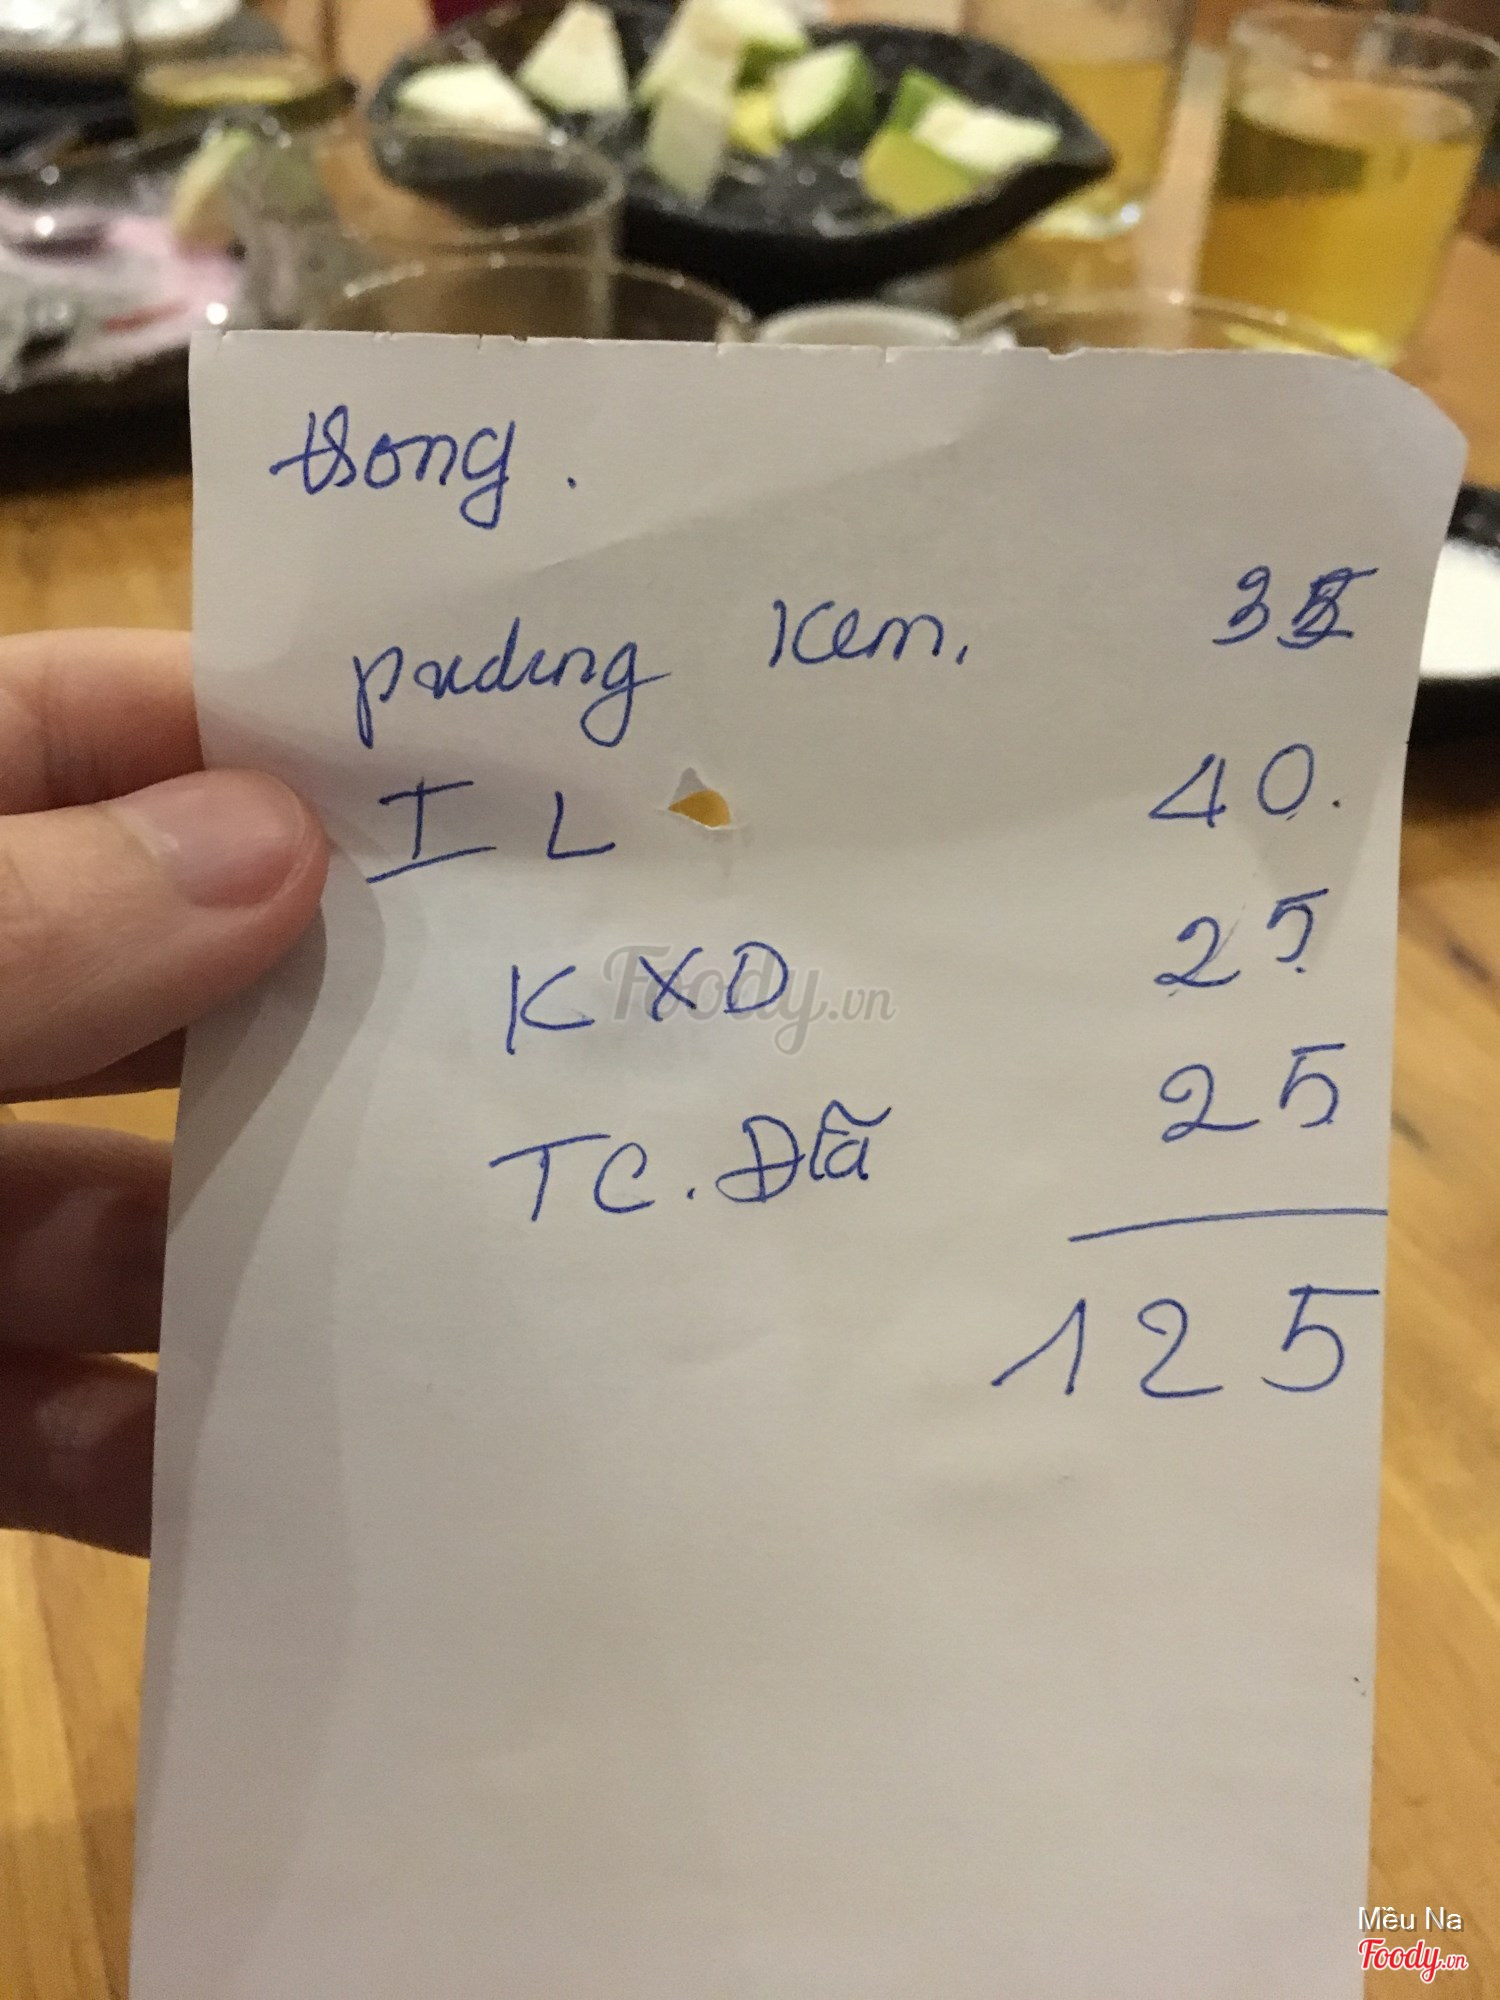 trong.
puding kem. 35
I L 40.
K X D 25
TC. Đĩa 25
125
Foody.vn
Mều Na
Foody.vn